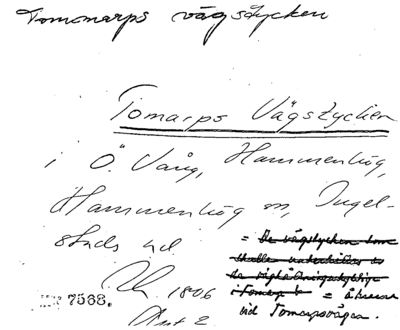 Tommarps vägstycken
Tomarps Vägstycken
i Ö. Vång, Hammenhög,
Hammenhög sn, Ingel-
stads hd
= De vägstycken som
skulle underhållas av
de väghållningsskyldige
i Tomarp
= åkrarna
vid Tomarpsvägen.
7568.
1806
Akt 2